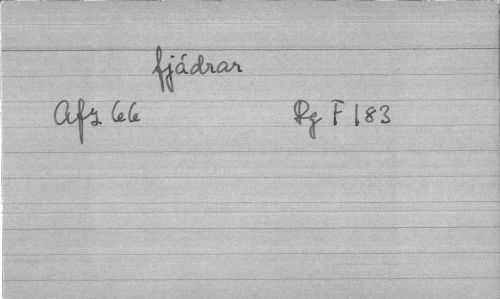 fjádrar
Afz 66 Rg F 183